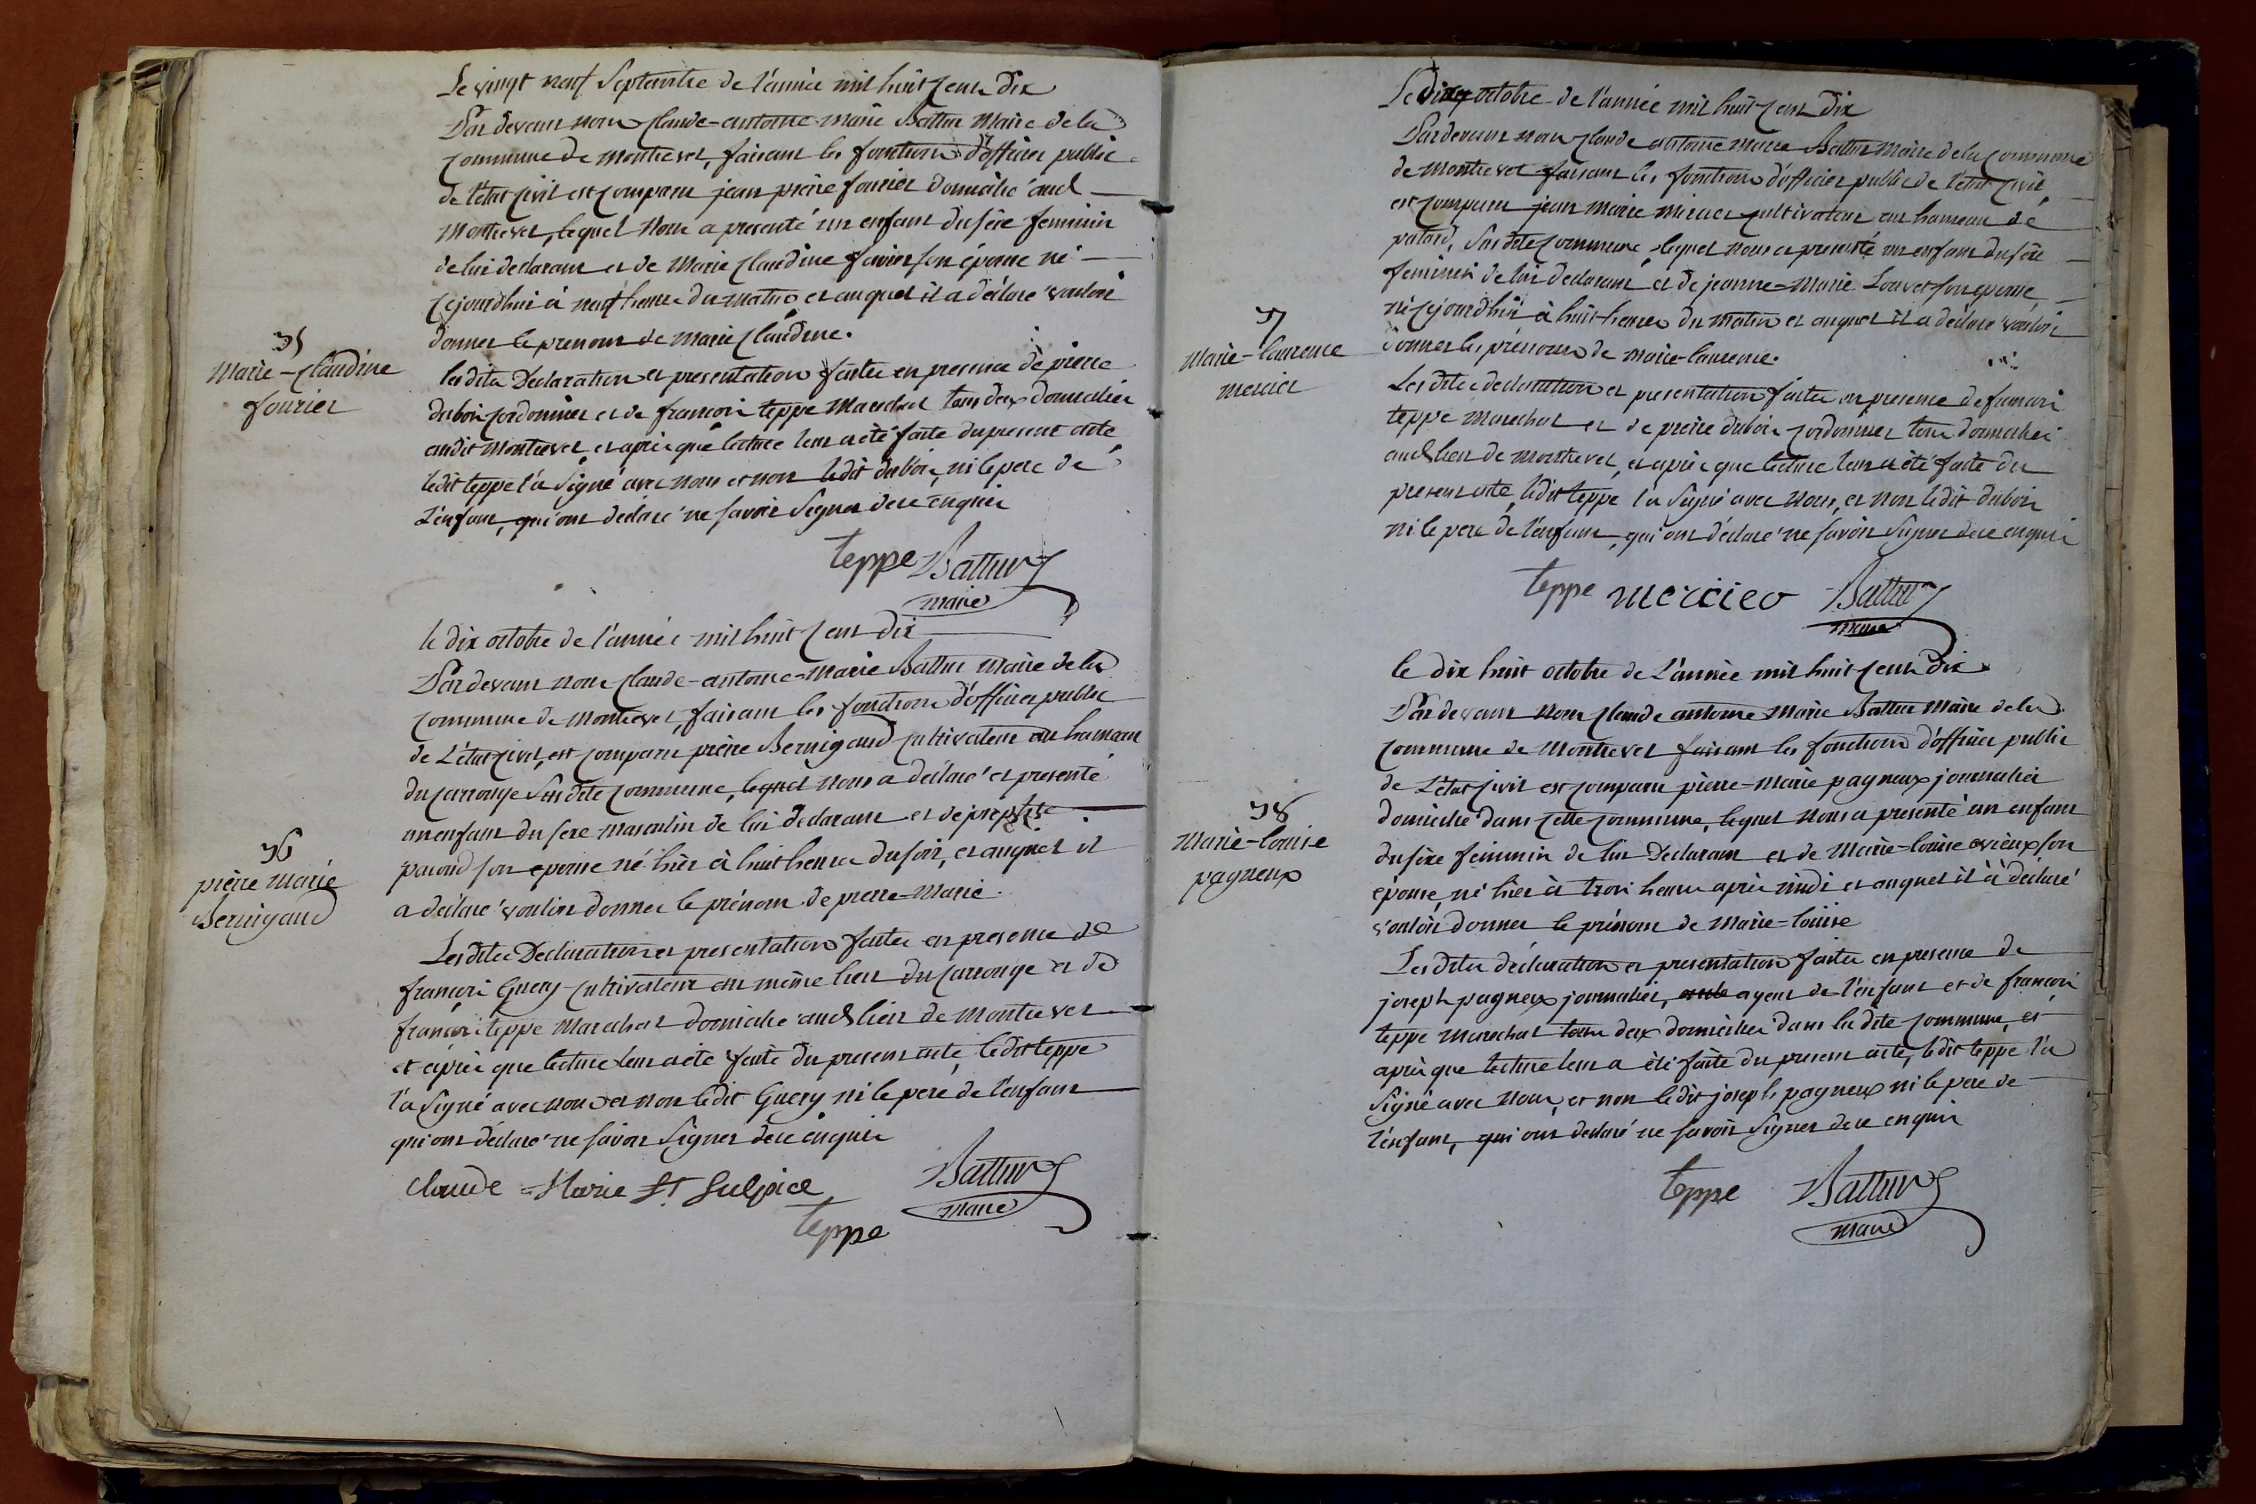 Le vingt neuf Septembre de l'année mil huit cent Dix
Par devant nous Claude-antoine marie Battur Maire de la
commune de montrevel, faisant les fonctions d'officier public
de l'état civil est comparu jean pierre fourier domicilié aud
montrevel, lequel nous a presenté un enfant du sexe feminin
de lui declarant et de Marie Claudine favier son épouse né
cejourdhui à neuf heures du matin et auquel il a déclaré vouloir
donner le prenom de marie Claudine.
35
Marie-Claudine
fourier
les dites Déclaration et presentation faites en presence de pierre
dubois cordonnier et de francois teppe Marechal tous deux domiciliés
audit montrevel et après que lecture leur a été faite du present acte
ledit teppe l'a signé avec nous et non ledit dubois, ni le pere de
l'enfant, qui ont déclaré ne savoir signer de ce enquis
teppe Battur
maire
le dix octobre de l'année mil huit cent dix
Par devant nous Claude-antoine-Marie Battur Maire de la
commune de montrevel, faisant les fonctions d'officier public
de L'état civil, est comparu pierre Bernigaud cultivateur au hameau
du carronge sus dite commune, lequel nous a déclaré et presenté
un enfant du sexe masculin de lui declarant et de
son epouse né hier à huit heures du soir, et auquel il
a déclaré vouloir donner le prénom de pierre-Marie.
36
pierre marie
Bernigaud
Les dites Déclaration et presentation faites en presence de
francois Guery cultivateur au même lieu du carronge et de
francois teppe Marechal domicilié aud lieu de montrevel
et après que lecture leur a été faite du present acte, ledit teppe
l'a signé avec nous et non ledit Guery ni le pere de l'enfant
qui ont déclaré ne savoir signer de ce enquis
Claude-Marie St Sulpice Battur
maire
teppe
Le octobre de l'année mil huit cent Dix
Par devant nous Claude antoine marie Battur Maire de la Commune
de Montrevel faisant les fonctions d'officier public de l'état civil
est comparu jean marie mercier cultivateur au hameau de
sus dite commune, lequel nous a presenté un enfant du sexe
feminin de lui declarant et de jeanne-Marie Louvet son epouse
né cejourdhui à huit heures du matin et auquel il a déclaré vouloir
donner les prénoms de marie-laurence.
37
Marie-laurence
mercier
Les dites declaration et presentation faites en presence de francois
teppe marechal et de pierre dubois cordonnier tous domiciliés
aud lieu de montrevel, et après que lecture leur a été faite du
present acte, ledit teppe l'a signé avec nous, et non ledit dubois
ni le pere de l'enfant, qui ont déclaré ne savoir signer de ce enquis
teppe mercier Battur
maire
le dix huit octobre de L'année mil huit cent Dix
Par devant nous Claude antoine Marie Battur Maire de la
commune de montrevel faisant les fonctions d'officier public
de L'état civil est comparu pierre-marie pagneux journalier
domicilié dans cette commune, lequel nous a presenté un enfant
du sexe feminin de lui Declarant et de Marie-louise son
épouse, né hier à trois heures après midi et auquel il à déclaré
vouloir donner le prénom de Marie-louise
38
Marie-louise
pagneux
Les dites déclaration et presentation faites en presence de
joseph pagneux journalier, ayeul de l'enfant et de francois
teppe marechal tous deux domiciliés dans la dite commune, et
après que lecture leur a été faite du present acte, ledit teppe l'a
signé avec nous, et non ledit joseph pagneux ni le pere de
l'enfant, qui ont declaré ne savoir signer de ce enquis
teppe Battur
maire